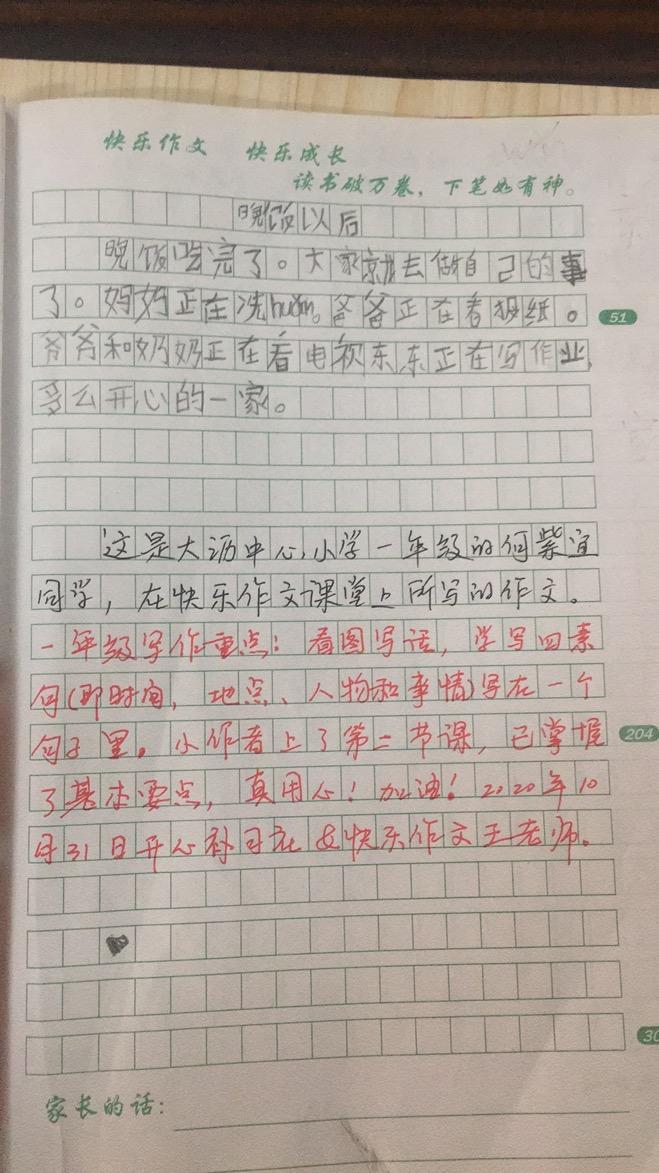 快乐作文 快乐成长
读书破万卷，下笔如有神。
晚饭以后
晚饭吃完了。大家就去做自己的事
了。妈妈正在洗huǎn。爸爸正在看报纸。
51
爷爷和奶奶正在看电视东东正在写作业,
多么开心的一家。
这是大沥中心小学一年级的何紫宜
同学，在快乐作文课堂上所写的作文。
一年级写作重点：看图写话，学写四素
句(即时间，地点、人物和事情)写在一个
句子里。小作者上了第二节课，已掌握
204
了基本要点，真用心！加油！2020年10
月31日开心补习社&快乐作文王老师。
30
家长的话：